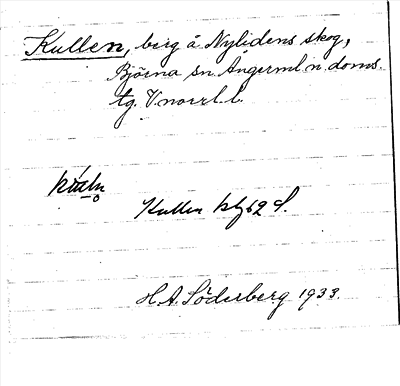 Kullen, berg å Nylidens skog,
Björna sn Ångerml. n. doms.
tg. V.norrl. l.
Kullen kbl 62 S.
H. A. Söderberg 1933.